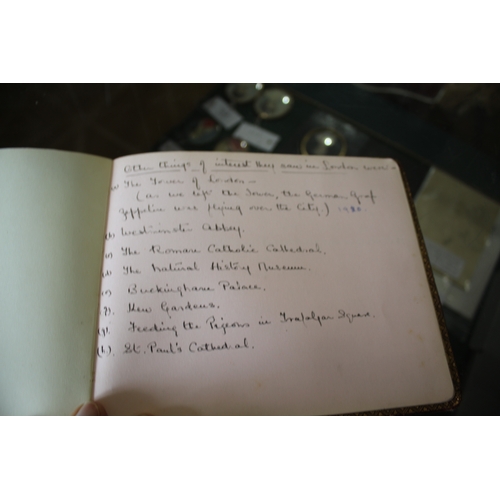 Other things of interest they saw in London were:-
(a) The Tower of London -
(as we left the Tower, the German Graf
Zeppelin was flying over the City.) 1930.
(b) Westminster Abbey.
(c) The Romane Catholic Cathedral.
(d) The Natural History Museum.
(e) Buckingham Palace.
(f). Kew Gardens.
(g). Feeding the Pigeons in Trafalgar Square.
(h). St. Paul's Cathedral.